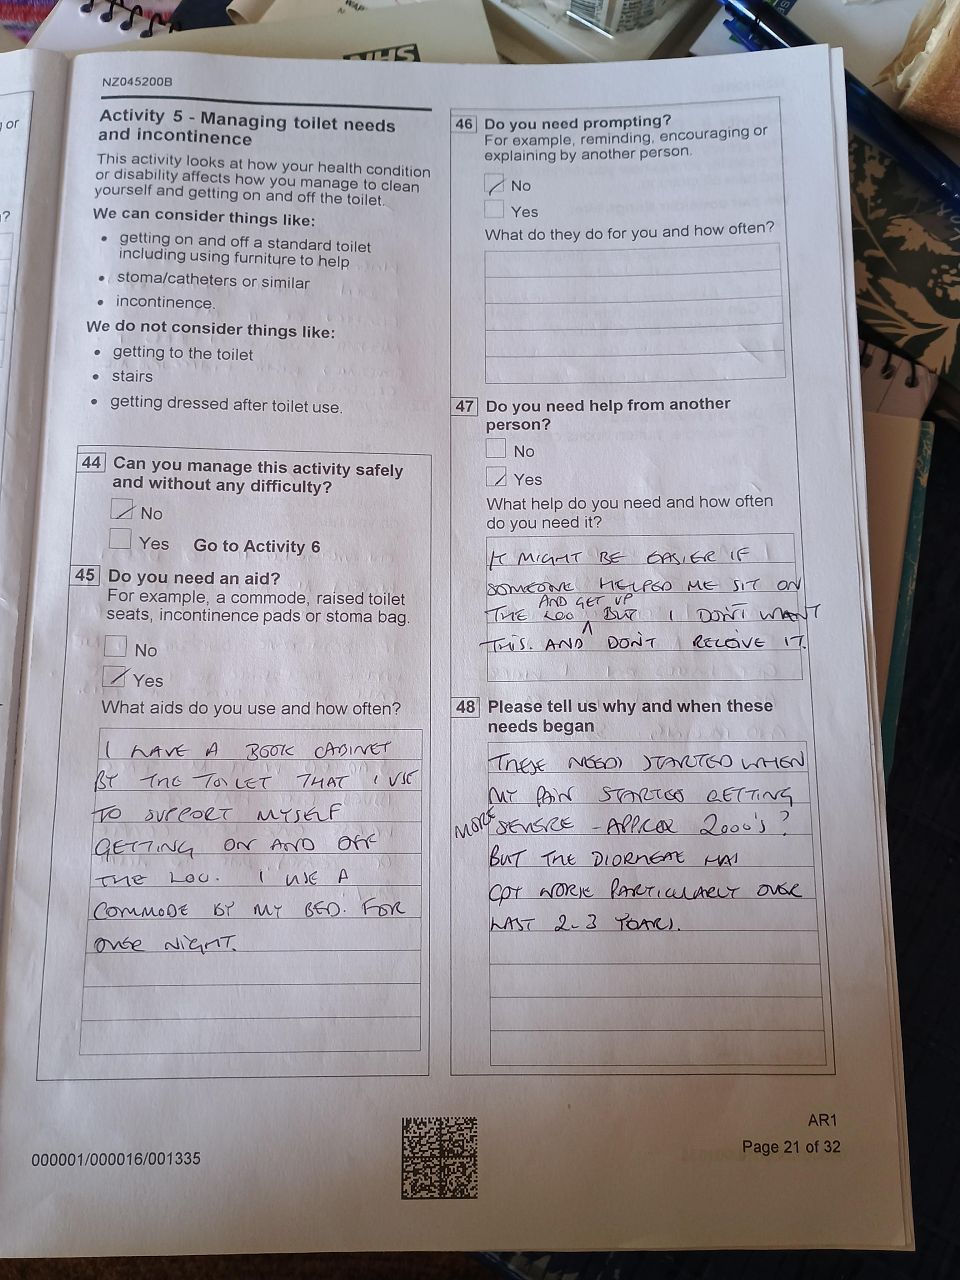 NHS
NZ045200B
Activity 5 - Managing toilet needs
and incontinence
This activity looks at how your health condition
or disability affects how you manage to clean
yourself and getting on and off the toilet.
We can consider things like:
• getting on and off a standard toilet
including using furniture to help
• stoma/catheters or similar
• incontinence.
We do not consider things like:
• getting to the toilet
• stairs
• getting dressed after toilet use.
44 Can you manage this activity safely
and without any difficulty?
No
Yes Go to Activity 6
45 Do you need an aid?
For example, a commode, raised toilet
seats, incontinence pads or stoma bag.
No
Yes
What aids do you use and how often?
I HAVE A BOOK CABINET
BY THE TOILET THAT I USE
TO SUPPORT MYSELF
GETTING ON AND OFF
THE LOO. I USE A
COMMODE BY MY BED. FOR
OVER NIGHT.
46 Do you need prompting?
For example, reminding, encouraging or
explaining by another person.
No
Yes
What do they do for you and how often?
47 Do you need help from another
person?
No
Yes
What help do you need and how often
do you need it?
IT MIGHT BE EASIER IF
SOMEONE HELPED ME SIT ON
AND GET UP
THE LOO BUT I DON'T WANT
THIS. AND DON'T RECEIVE IT.
48 Please tell us why and when these
needs began
THESE NEEDS STARTED WHEN
MY PAIN STARTED GETTING
MORE SEVERE - APPROX 2000's?
BUT THE DIORHEAE HAS
GOT WORSE PARTICULARLY OVER
LAST 2-3 YEARS.
000001/000016/001335
AR1
Page 21 of 32